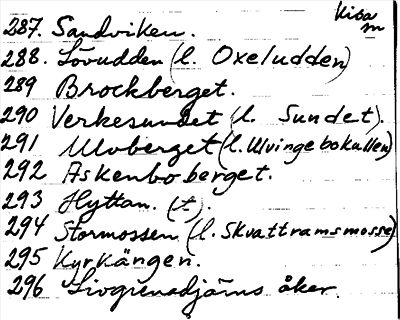 Kisa
287. Sandviken.
288. Lövudden (l. Oxeludden)
289 Brockberget.
290 Verkesundet (l. Sundet).
291 Ulvberget (l. Ulvingebokullen)
292 Askenboberget.
293 Hyttan. (t).
294 Stormossen (l. Skvattramsmosse)
295 Kyrkängen.
296 Livgrenadjärns åker.